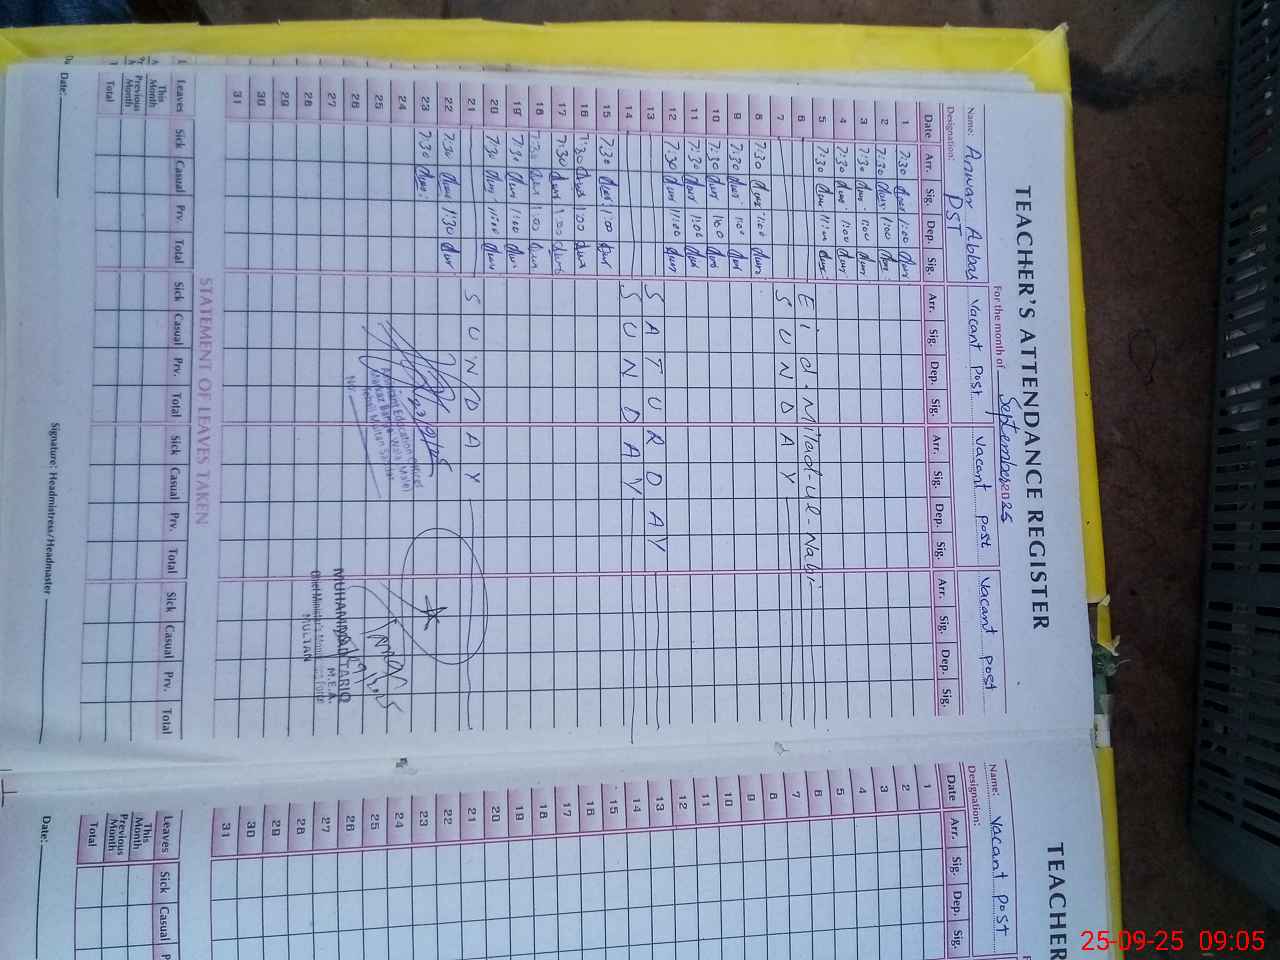 TEACHER'S ATTENDANCE REGISTER
For the month of September 2025
Name: Anwar Abbas Vacant Post Vacant Post Vacant Post
Designation: PST
Date Arr. Sig. Dep. Sig. Arr. Sig. Dep. Sig. Arr. Sig. Dep. Sig. Arr. Sig. Dep. Sig.
1 7:30 1:00
2 7:30 1:00
3 7:30 1:00
4 7:30 1:00
5 7:30
6 Eid-Milad-ul-Nabi
7 SUNDAY
8 7:30 1:00
9 7:30 1:00
10 7:30 1:00
11 7:30 1:00
12 7:30 11:00
13 SATURDAY
14 SUNDAY
15 7:30 1:00
16 7:30 1:00
17 7:30 1:00
18 7:30 1:00
19 7:30 1:00
20 7:30 11:00
21 SUNDAY
22 7:30 1:30
23 7:30
24
25
26
27
28
29
30
31
23/9/25
Assistant Education Officer
Markaz Wala (Male)
Tehsil Multan Saddar
MUHAMMAD TARIQ
M.E.A.
Chief Minister's Monitoring Force
MULTAN
STATEMENT OF LEAVES TAKEN
Leaves Sick Casual Prv. Total Sick Casual Prv. Total Sick Casual Prv. Total Sick Casual Prv. Total
This Month
Previous Month
Total
Date: Signature: Headmistress/Headmaster
TEACHER
Name: Vacant Post
Designation:
Date Arr. Sig. Dep. Sig.
1
2
3
4
5
6
7
8
9
10
11
12
13
14
15
16
17
18
19
20
21
22
23
24
25
26
27
28
29
30
31
Leaves Sick Casual
This Month
Previous Month
Total
Date:
25-09-25 09:05